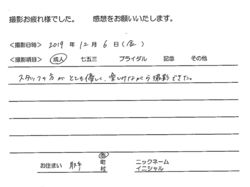 撮影お疲れ様でした。 感想をお願いいたします。
<撮影日時> 2019 年 12 月 6 日 (金)
<撮影項目> 成人 七五三 ブライダル 記念 その他
スタッフの方がとても優しく、楽しみながら撮影できた。
市
お住まい 取手 町 ニックネーム
村 イニシャル